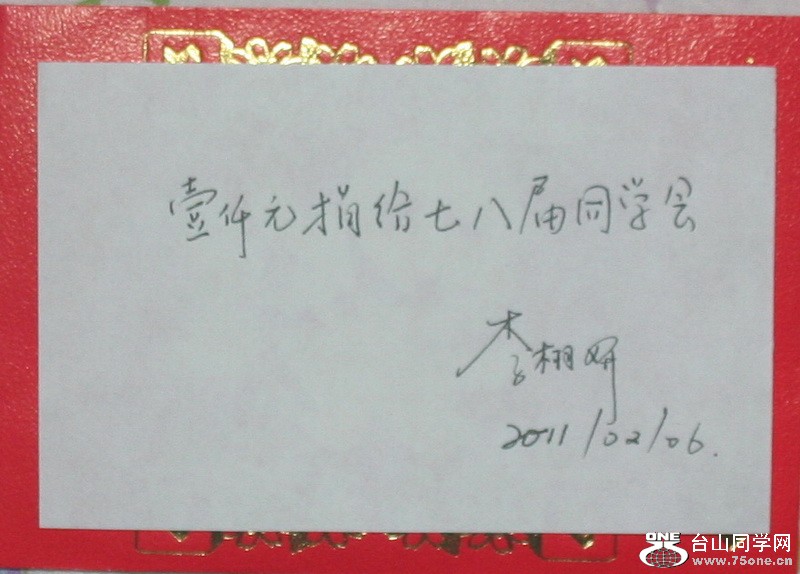 壹仟元捐给七八届同学会
李栩妍
2011/02/06.
ONE 台山同学网
www.75one.cn